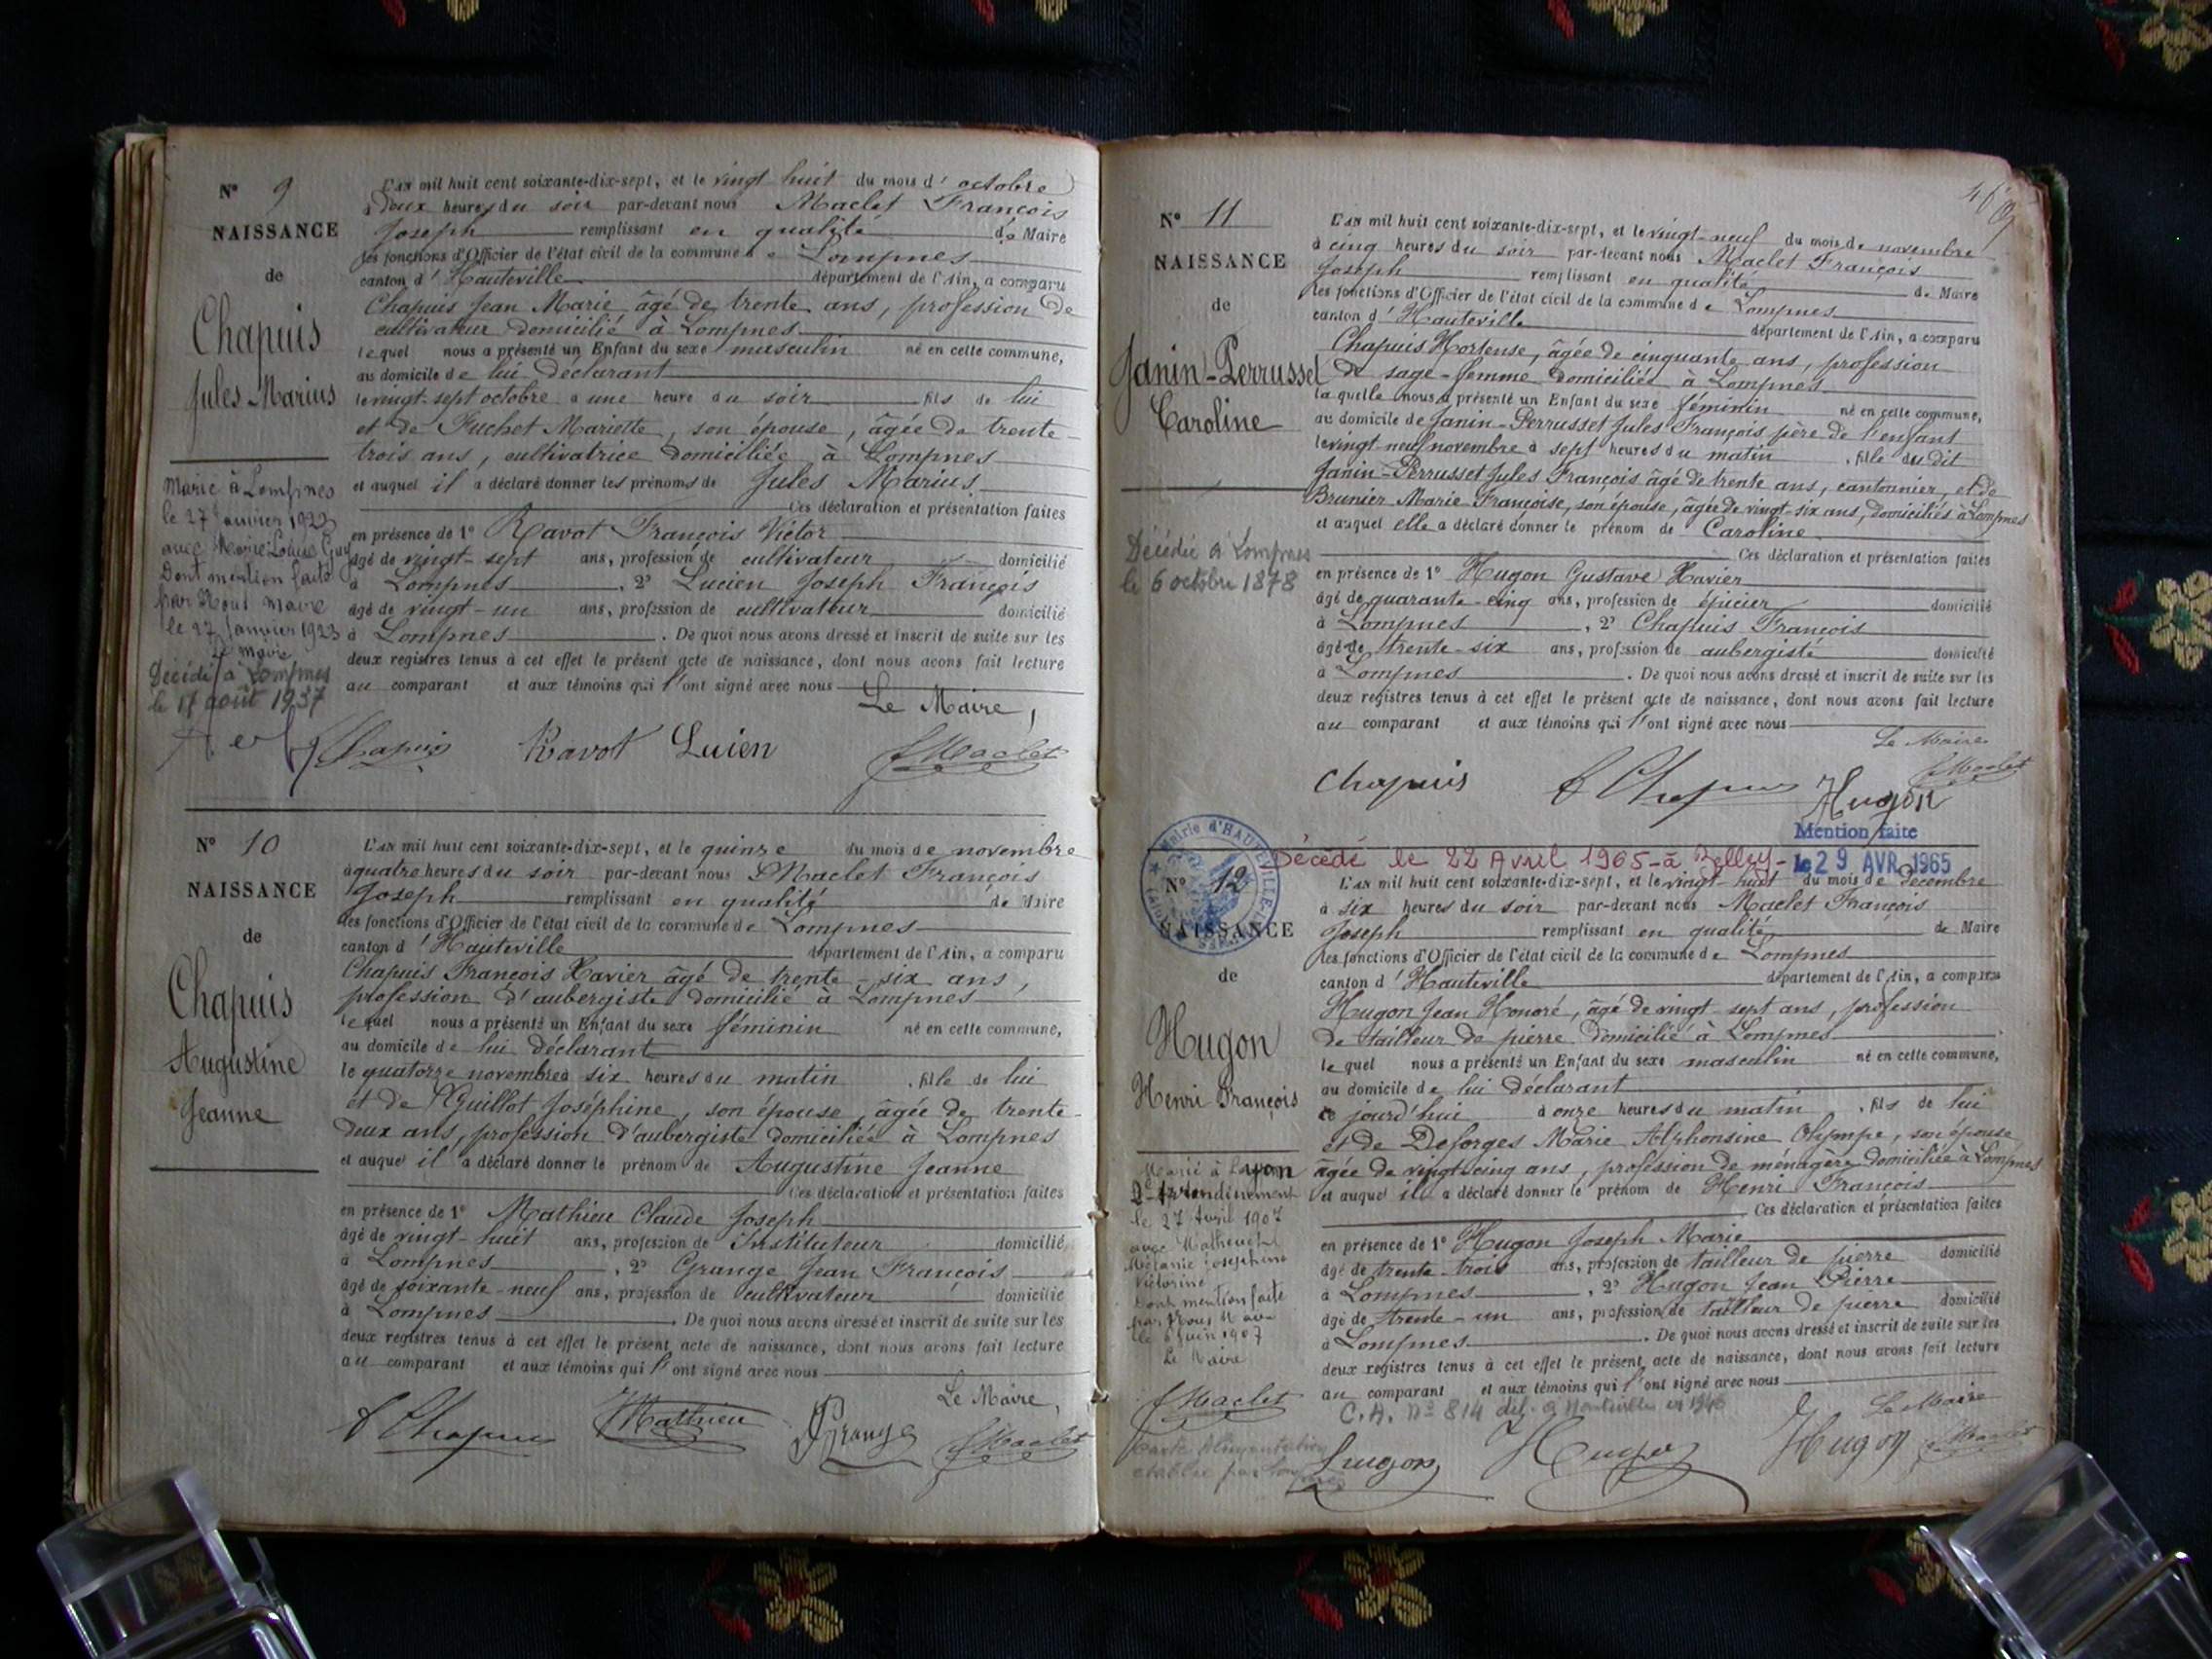 N° 9
NAISSANCE
de
Chapuis
Jules Marius
Marié à Lompnes
le 27 Janvier 1923
avec Marie Louise Guy
Dont mention faite
par Nous maire
le 27 Janvier 1923
Le maire
Décédé à Lompnes
le 17 août 1937
L'AN mil huit cent soixante-dix-sept, et le vingt huit du mois d' octobre
à deux heures du soir par-devant nous Maclet François
Joseph remplissant en qualité de Maire
les fonctions d'Officier de l'état civil de la commune de Lompnes
canton d' Hauteville département de l'Ain, a comparu
Chapuis Jean Marie âgé de trente ans, profession de
cultivateur domicilié à Lompnes
lequel nous a présenté un Enfant du sexe masculin né en cette commune,
au domicile de lui déclarant
le vingt-sept octobre à une heure du soir fils de lui
et de Fuchet Mariette, son épouse, âgée de trente-
trois ans, cultivatrice domiciliée à Lompnes
et auquel il a déclaré donner les prénoms de Jules Marius
Ces déclaration et présentation faites
en présence de 1° Ravot François Victor
âgé de vingt-sept ans, profession de cultivateur domicilié
à Lompnes, 2° Lucien Joseph François
âgé de vingt-un ans, profession de cultivateur domicilié
à Lompnes. De quoi nous avons dressé et inscrit de suite sur les
deux registres tenus à cet effet le présent acte de naissance, dont nous avons fait lecture
au comparant et aux témoins qui l'ont signé avec nous
Le Maire,
Chapuis Ravot Lucien JMaclet
N° 10
NAISSANCE
de
Chapuis
Augustine
Jeanne
L'AN mil huit cent soixante-dix-sept, et le quinze du mois de novembre
à quatre heures du soir par-devant nous Maclet François
Joseph remplissant en qualité de Maire
les fonctions d'Officier de l'état civil de la commune de Lompnes
canton d' Hauteville département de l'Ain, a comparu
Chapuis François Xavier âgé de trente-six ans,
profession d'aubergiste domicilié à Lompnes
lequel nous a présenté un Enfant du sexe féminin né en cette commune,
au domicile de lui déclarant
le quatorze novembre à six heures du matin, fille de lui
et de Guillot Joséphine, son épouse, âgée de trente-
deux ans, profession d'aubergiste domiciliée à Lompnes
et auquel il a déclaré donner le prénom de Augustine Jeanne
Ces déclaration et présentation faites
en présence de 1° Mathieu Claude Joseph
âgé de vingt-huit ans, profession de Instituteur domicilié
à Lompnes, 2° Grange Jean François
âgé de soixante-neuf ans, profession de cultivateur domicilié
à Lompnes. De quoi nous avons dressé et inscrit de suite sur les
deux registres tenus à cet effet le présent acte de naissance, dont nous avons fait lecture
au comparant et aux témoins qui l'ont signé avec nous
Le Maire,
F Chapuis Mathieu Grange JMaclet
N° 11
NAISSANCE
de
Janin-Perrusset
Caroline
Décédée à Lompnes
le 6 octobre 1878
L'AN mil huit cent soixante-dix-sept, et le vingt-neuf du mois de novembre
à cinq heures du soir par-devant nous Maclet François
Joseph remplissant en qualité de Maire
les fonctions d'Officier de l'état civil de la commune de Lompnes
canton d' Hauteville département de l'Ain, a comparu
Chapuis Hortense, âgée de cinquante ans, profession
de sage-femme domiciliée à Lompnes
laquelle nous a présenté un Enfant du sexe féminin né en cette commune,
au domicile de Janin-Perrusset Jules François père de l'enfant
le vingt-neuf novembre à sept heures du matin, fille du dit
Janin-Perrusset Jules François âgé de trente ans, cantonnier, et de
Brunier Marie Françoise, son épouse, âgée de vingt-six ans, domiciliés à Lompnes
et auquel elle a déclaré donner le prénom de Caroline
Ces déclaration et présentation faites
en présence de 1° Hugon Gustave Xavier
âgé de quarante-cinq ans, profession de épicier domicilié
à Lompnes, 2° Chapuis François
âgé de trente-six ans, profession de aubergiste domicilié
à Lompnes. De quoi nous avons dressé et inscrit de suite sur les
deux registres tenus à cet effet le présent acte de naissance, dont nous avons fait lecture
au comparant et aux témoins qui l'ont signé avec nous
Le Maire
Chapuis F Chapuis Hugon JMaclet
Mention faite
le 29 AVR. 1965
Décédé le 22 Avril 1965 à Belley
Mairie d'HAUTEVILLE-LOMPNES
N° 12
NAISSANCE
de
Hugon
Henri François
Marié à Lyon
2e Arrondissement
le 27 Avril 1907
avec Mathieu
Mélanie Joséphine
Victorine
Dont mention faite
par Nous Maire
le 6 Juin 1907
Le Maire
JMaclet
Carte Alimentation
établie par
L'AN mil huit cent soixante-dix-sept, et le vingt huit du mois de décembre
à six heures du soir par-devant nous Maclet François
Joseph remplissant en qualité de Maire
les fonctions d'Officier de l'état civil de la commune de Lompnes
canton d' Hauteville département de l'Ain, a comparu
Hugon Jean Honoré, âgé de vingt sept ans, profession
de tailleur de pierre domicilié à Lompnes
lequel nous a présenté un Enfant du sexe masculin né en cette commune,
au domicile de lui déclarant
ce jourd'hui à onze heures du matin, fils de lui
et de Deforges Marie Alphonsine Olympe, son épouse
âgée de vingt-cinq ans, profession de ménagère domiciliée à Lompnes
et auquel il a déclaré donner le prénom de Henri François
Ces déclaration et présentation faites
en présence de 1° Hugon Joseph Marie
âgé de trente-trois ans, profession de tailleur de pierre domicilié
à Lompnes, 2° Hugon Jean Pierre
âgé de trente-un ans, profession de tailleur de pierre domicilié
à Lompnes. De quoi nous avons dressé et inscrit de suite sur les
deux registres tenus à cet effet le présent acte de naissance, dont nous avons fait lecture
au comparant et aux témoins qui l'ont signé avec nous
C.A. N° 814 dél. à Hauteville en 1946
Le Maire
Hugon Hugon Hugon JMaclet